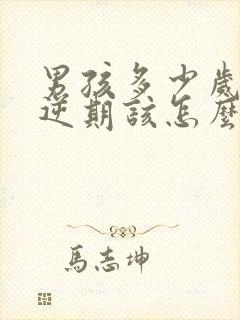 男孩多少歲
逆期該怎麼
馬志坤